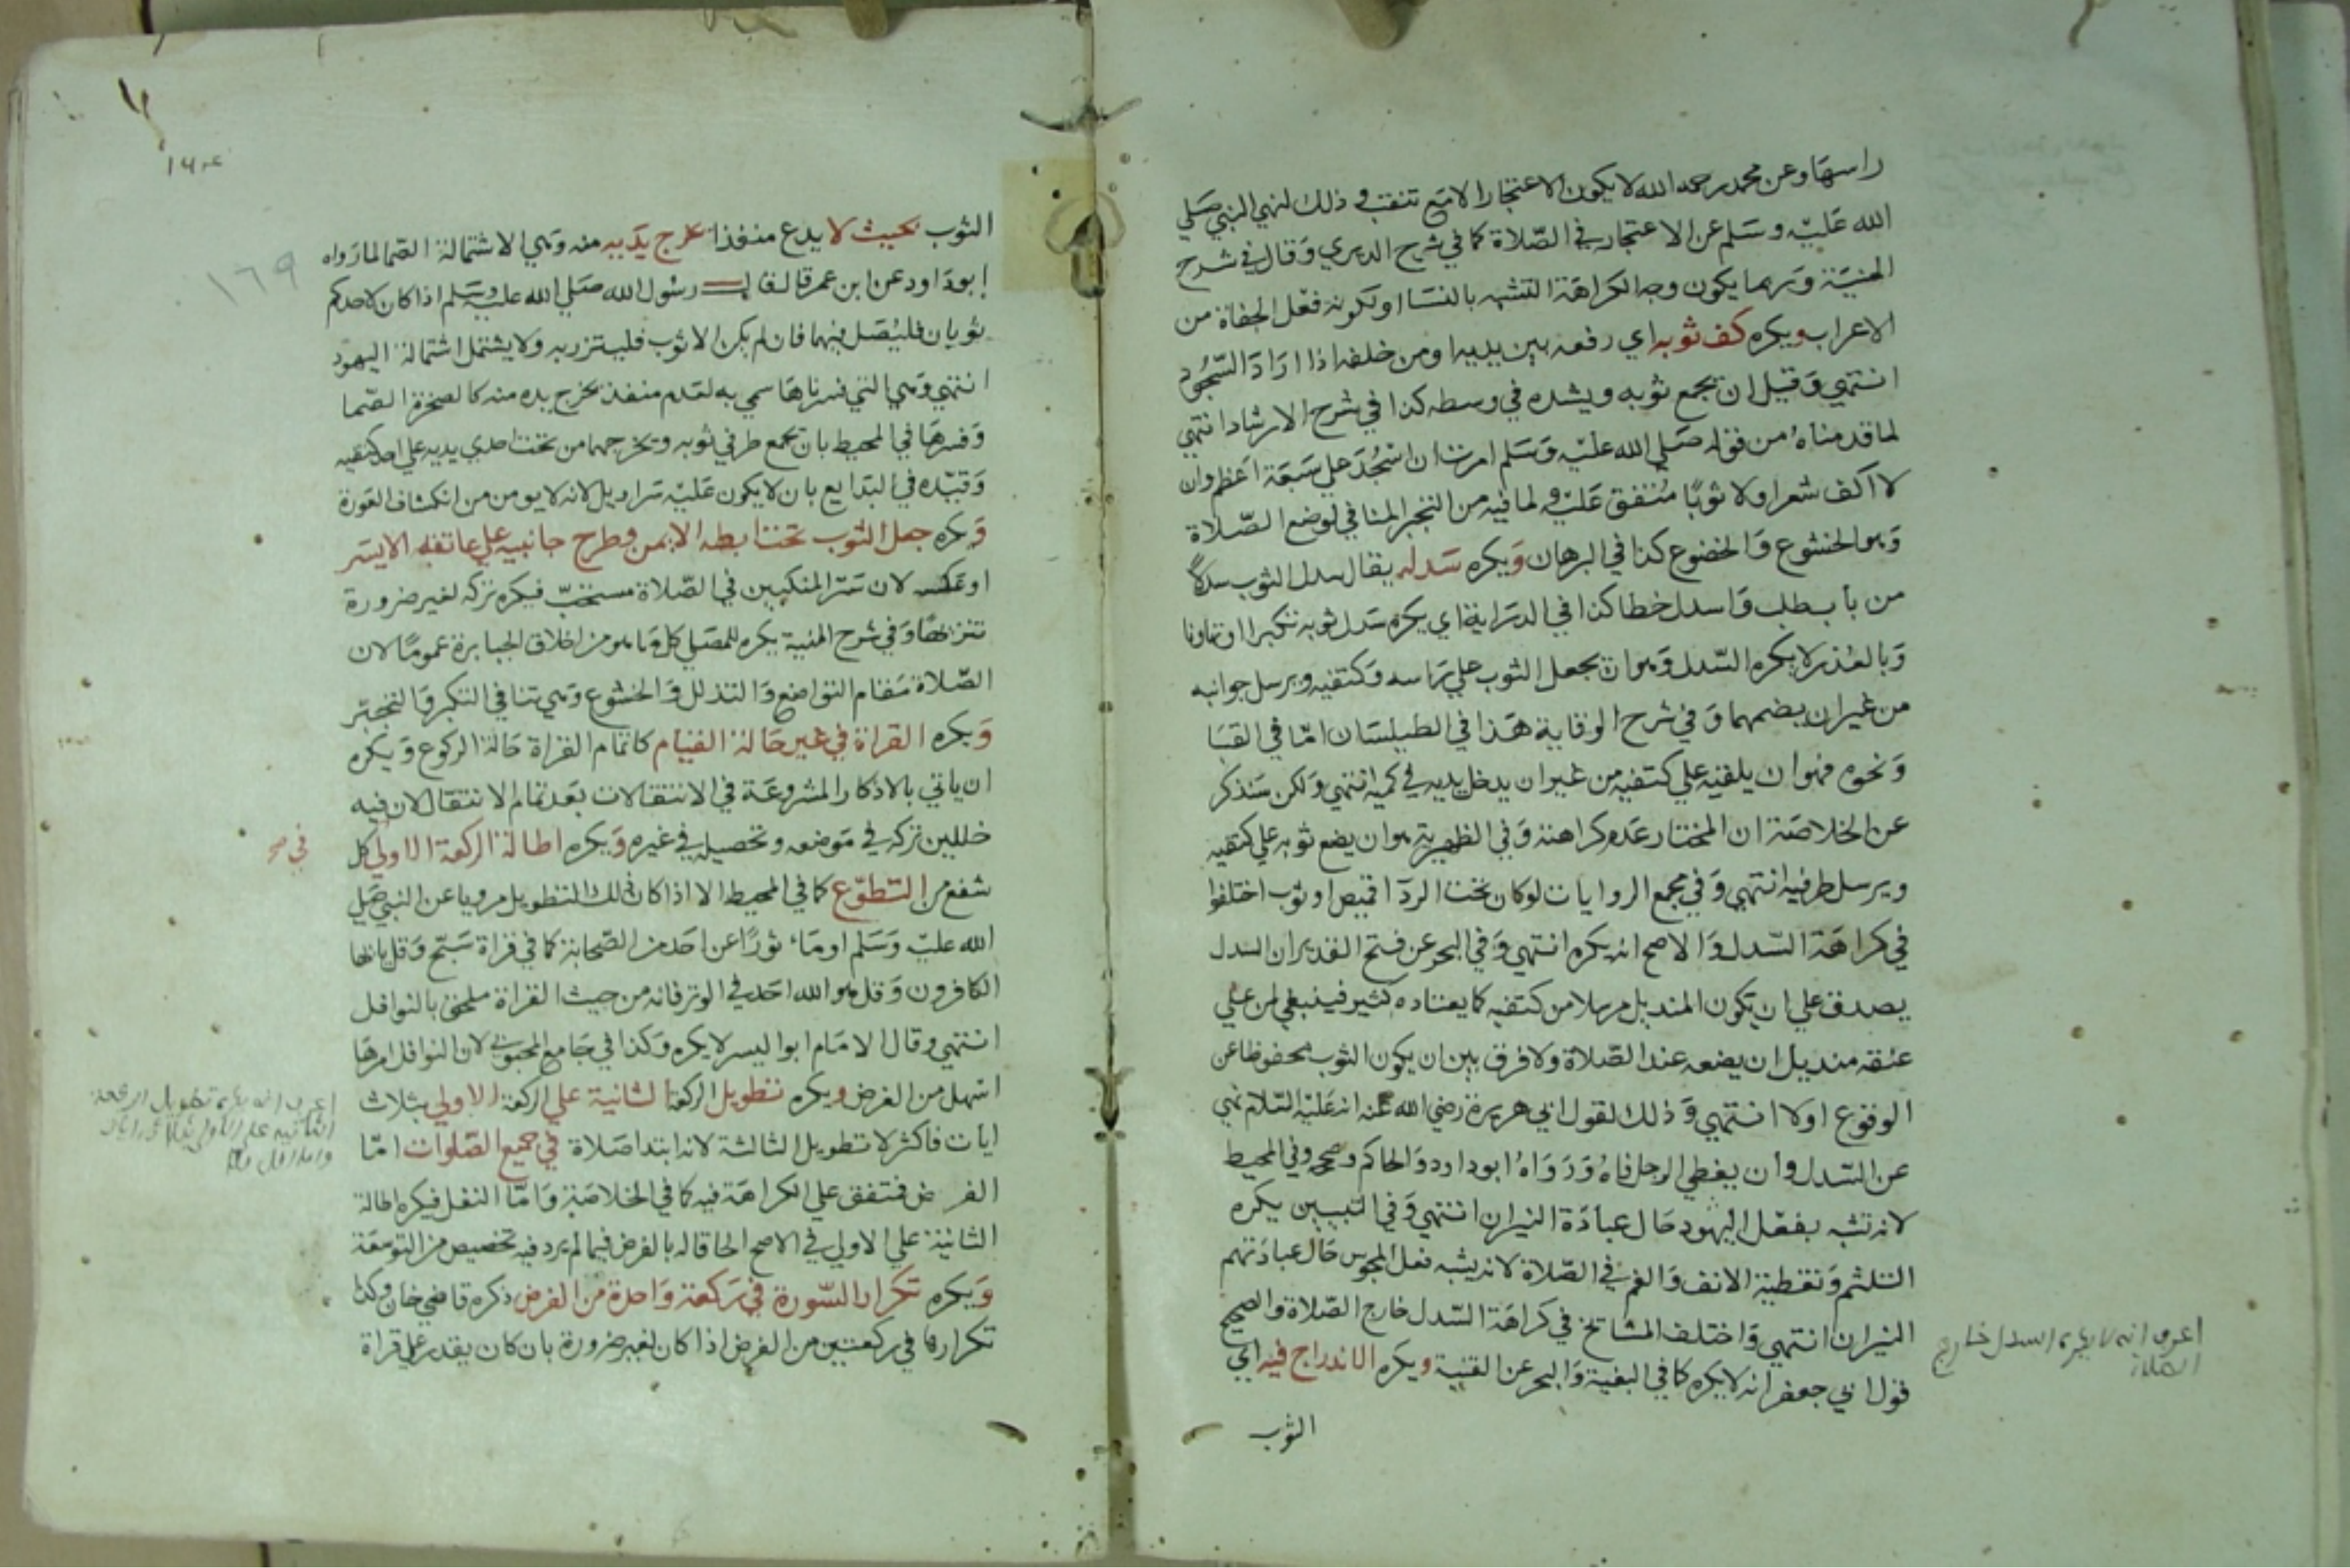 راسها وعن محمد رحمه الله لا يكون الاعتجار الا مع تنقب وذلك لنهي النبي صلي
الله عليه وسلم عن الاعتجار في الصلاة كما في شرح الديري وقال في شرح
المنية وربما يكون وجه الكراهة التشبه بالنسا او لكونه فعل الجفاة من
الاعراب ويكره كف ثوبه اي رفعه بين يديه او من خلفه اذا اراد السجود
انتهي وقيل ان يجمع ثوبه ويشده في وسطه كذا في شرح الارشاد انتهي
لما قدمناه من قوله صلي الله عليه وسلم امرت ان اسجد علي سبعة اعظم وان
لا اكف شعرا ولا ثوبا متفق عليه ولما فيه من التجبر المنافي لوضع الصلاة
وهو الخشوع والخضوع كذا في البرهان ويكره سدله يقال سدل الثوب سدلا
من باب طلب واسدل خطا كذا في الدراية اي يكره سدل ثوبه تكبرا او تهاونا
وبالعذر لا يكره السدل وهو ان يجعل الثوب علي راسه وكتفيه ويرسل جوانبه
من غير ان يضمهما وفي شرح الوقاية هذا في الطيلسان اما في القبا
ونحوه فهو ان يلقيه علي كتفيه من غير ان يدخل يديه في كميه انتهي ولكن سنذكر
عن الخلاصة ان المختار عدم كراهته وفي الظهيرية هو ان يضع ثوبه علي كتفيه
ويرسل طرفيه انتهي وفي مجمع الروايات لو كان تحت الردا قميص او ثوب اختلفوا
في كراهة السدل والاصح انه يكره انتهي وفي البحر عن فتح القدير ان السدل
يصدق علي ان يكون المنديل مرسلا من كتفيه كما يعتاده كثير فينبغي لمن علي
عنقه منديل ان يضعه عند الصلاة ولا فرق بين ان يكون الثوب محفوظا عن
الوقوع اولا انتهي وذلك لقول ابي هريرة رضي الله عنه انه عليه السلام نهي
عن السدل وان يغطي الرجل فاه ورواه ابو داود والحاكم وصححه وفي المحيط
لانه تشبه بفعل اليهود حال عبادة النيران انتهي وفي التبيين يكره
التلثم وتغطية الانف والفم في الصلاة لانه يشبه فعل المجوس حال عبادتهم
النيران انتهي واختلف المشائخ في كراهة السدل خارج الصلاة والصحيح
قول ابي جعفر انه لا يكره كما في البغية والبحر عن القنية ويكره الاندراج فيه اي
الثوب
اعرف انه لا يكره السدل خارج
الصلاة
١٦٩
الثوب بحيث لا يدع منفذا يخرج يديه منه وهي الاشتمالة الصما لما رواه
ابو داود عن ابن عمر قال قال رسول الله صلي الله عليه وسلم اذا كان لاحدكم
ثوبان فليصل فيهما فان لم يكن الا ثوب فليتزر به ولا يشتمل اشتمالة اليهود
انتهي وهي التي فسرناها سمي به لعدم منفذ يخرج يده منه كالصخرة الصما
وفسرها في المحيط بان يجمع طرفي ثوبه ويخرجهما من تحت احدي يديه علي احد كتفيه
وقيده في البدايع بان لا يكون عليه سراويل لانه لا يومن من انكشاف العورة
ويكره جعل الثوب تحت ابطه الايمن وطرح جانبيه علي عاتقه الايسر
او عكسه لان ستر المنكبين في الصلاة مستحب فيكره تركه لغير ضرورة
تنزيها وفي شرح المنية يكره للمصلي كل ما هو من اخلاق الجبابرة عموما لان
الصلاة مقام التواضع والتذلل والخشوع وهي تنافي التكبر والتجبر
ويكره القراة في غير حالة القيام كاتمام القراة حالة الركوع ويكره
ان ياتي بالاذكار المشروعة في الانتقالات بعد تمام الانتقال لان فيه
خللين تركه في موضعه وتحصيله في غيره ويكره اطالة الركعة الاولي كل
في صح
شفع من التطوع كما في المحيط الا اذا كان ذلك التطويل مرويا عن النبي صلي
الله عليه وسلم او ماثورا عن احد من الصحابة كما في قراة سبح وقل يا ايها
الكافرون وقل هو الله احد في الوتر فانه من حيث القراة ملحق بالنوافل
انتهي وقال الامام ابو اليسر لا يكره وكذا في جامع المحبوبي لان النوافل امرها
اسهل من الفرض ويكره تطويل الركعة الثانية علي الركعة الاولي بثلاث
ايات فاكثر لا تطويل الثالثة لانه ابتدا صلاة في جميع الصلوات اما
الفرض فمتفق علي الكراهة فيه كما في الخلاصة واما النفل فيكره اطالة
الثانية علي الاولي في الاصح الحاقا له بالفرض فيما لم يرد فيه تخصيص من التوسعة
ويكره تكرار السورة في ركعة واحدة من الفرض ذكره قاضي خان وكذا
تكرارها في ركعتين من الفرض اذا كان لغير ضرورة بان كان يقدر علي قراة
اعرف انه يكره تطويل الركعة
الثانية علي الاولي بثلاث ايات